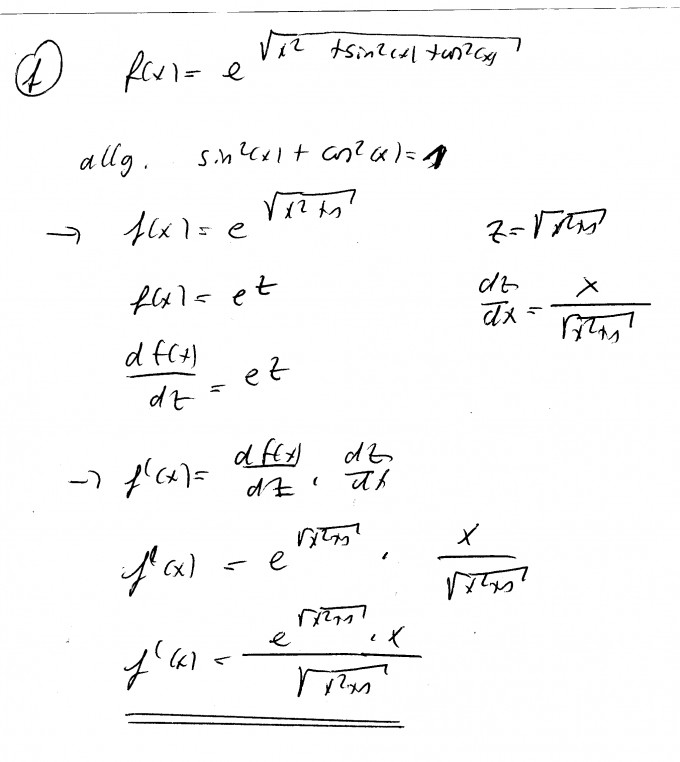 ① f(x) = e^√(x² + sin²(x) + cos²(x))
allg. sin²(x) + cos²(x) = 1
→ f(x) = e^√(x²+1) z = √(x²+1)
f(x) = e^z dz/dx = x/√(x²+1)
df(x)/dz = e^z
→ f'(x) = df(x)/dz · dz/dx
f'(x) = e^√(x²+1) · x/√(x²+1)
f'(x) = e^√(x²+1) · x / √(x²+1)